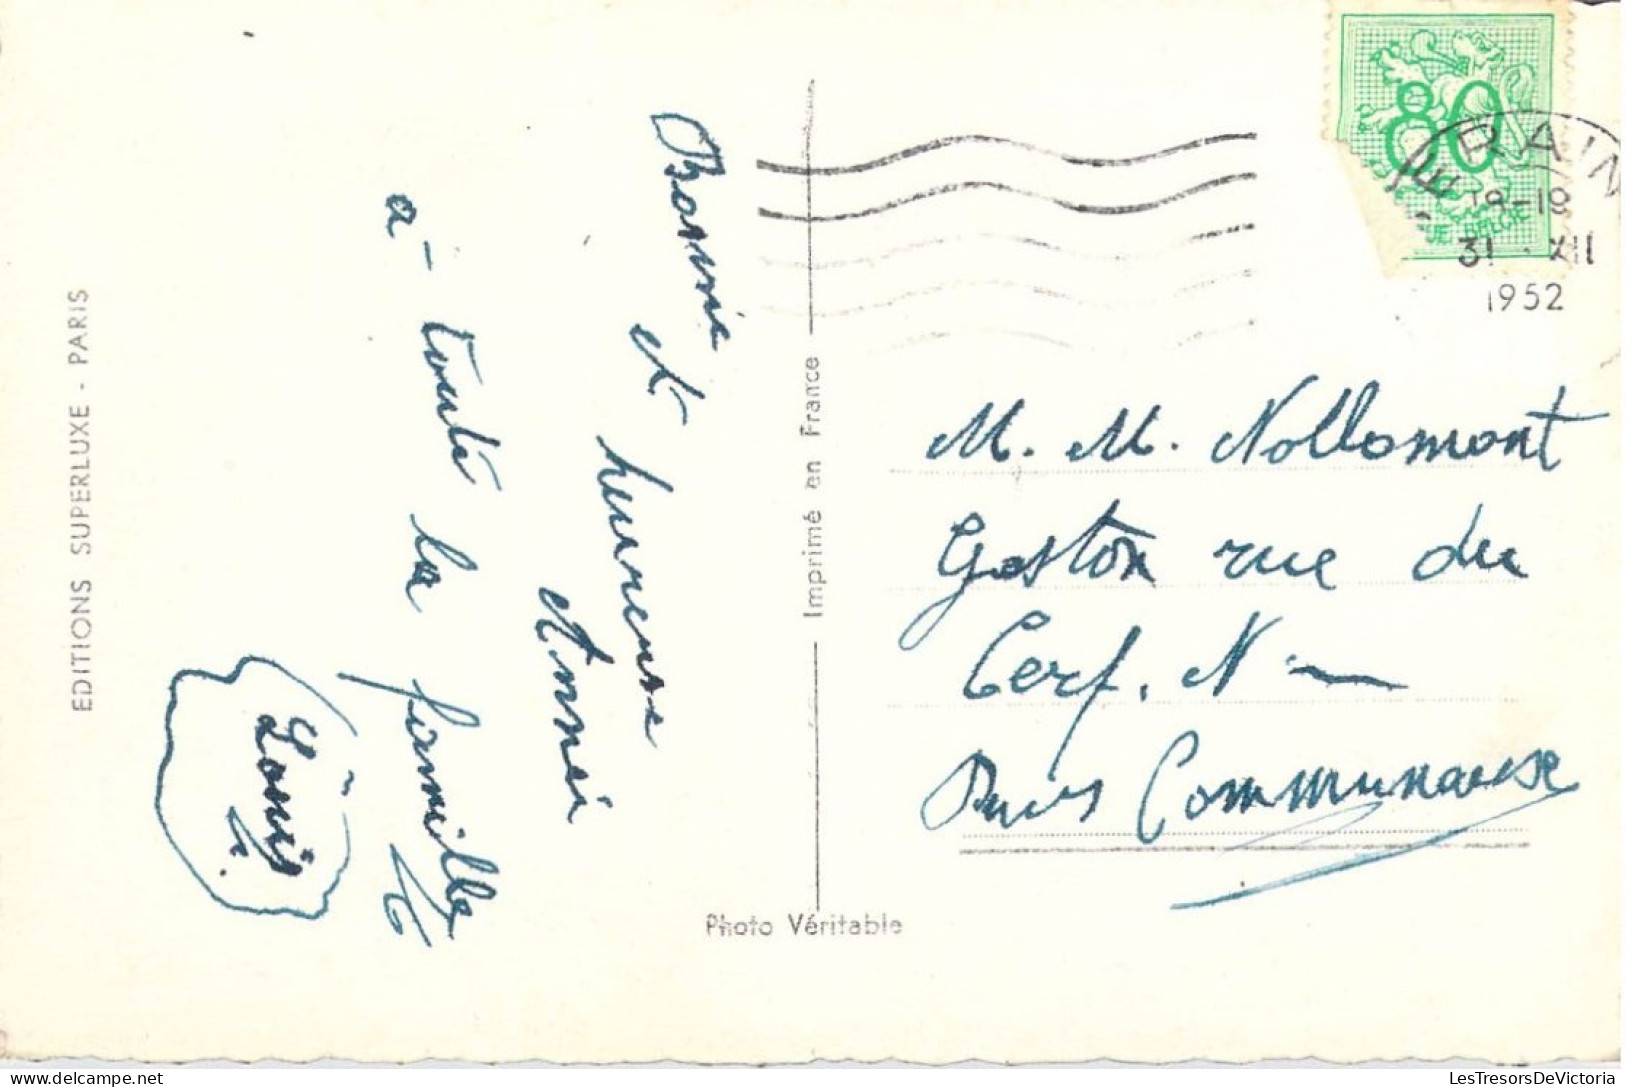 EDITIONS SUPERLUXE - PARIS
Bonne
et heureuse
Année
à toute la famille
Louis
Imprimé en France
Photo Véritable
80
BELGIE
ERAIN
18-19
31 XII
1952
M. M. Nollomont
Gaston rue du
Cerf. N —
Communause
delcampe.net
LesTresorsDeVictoria